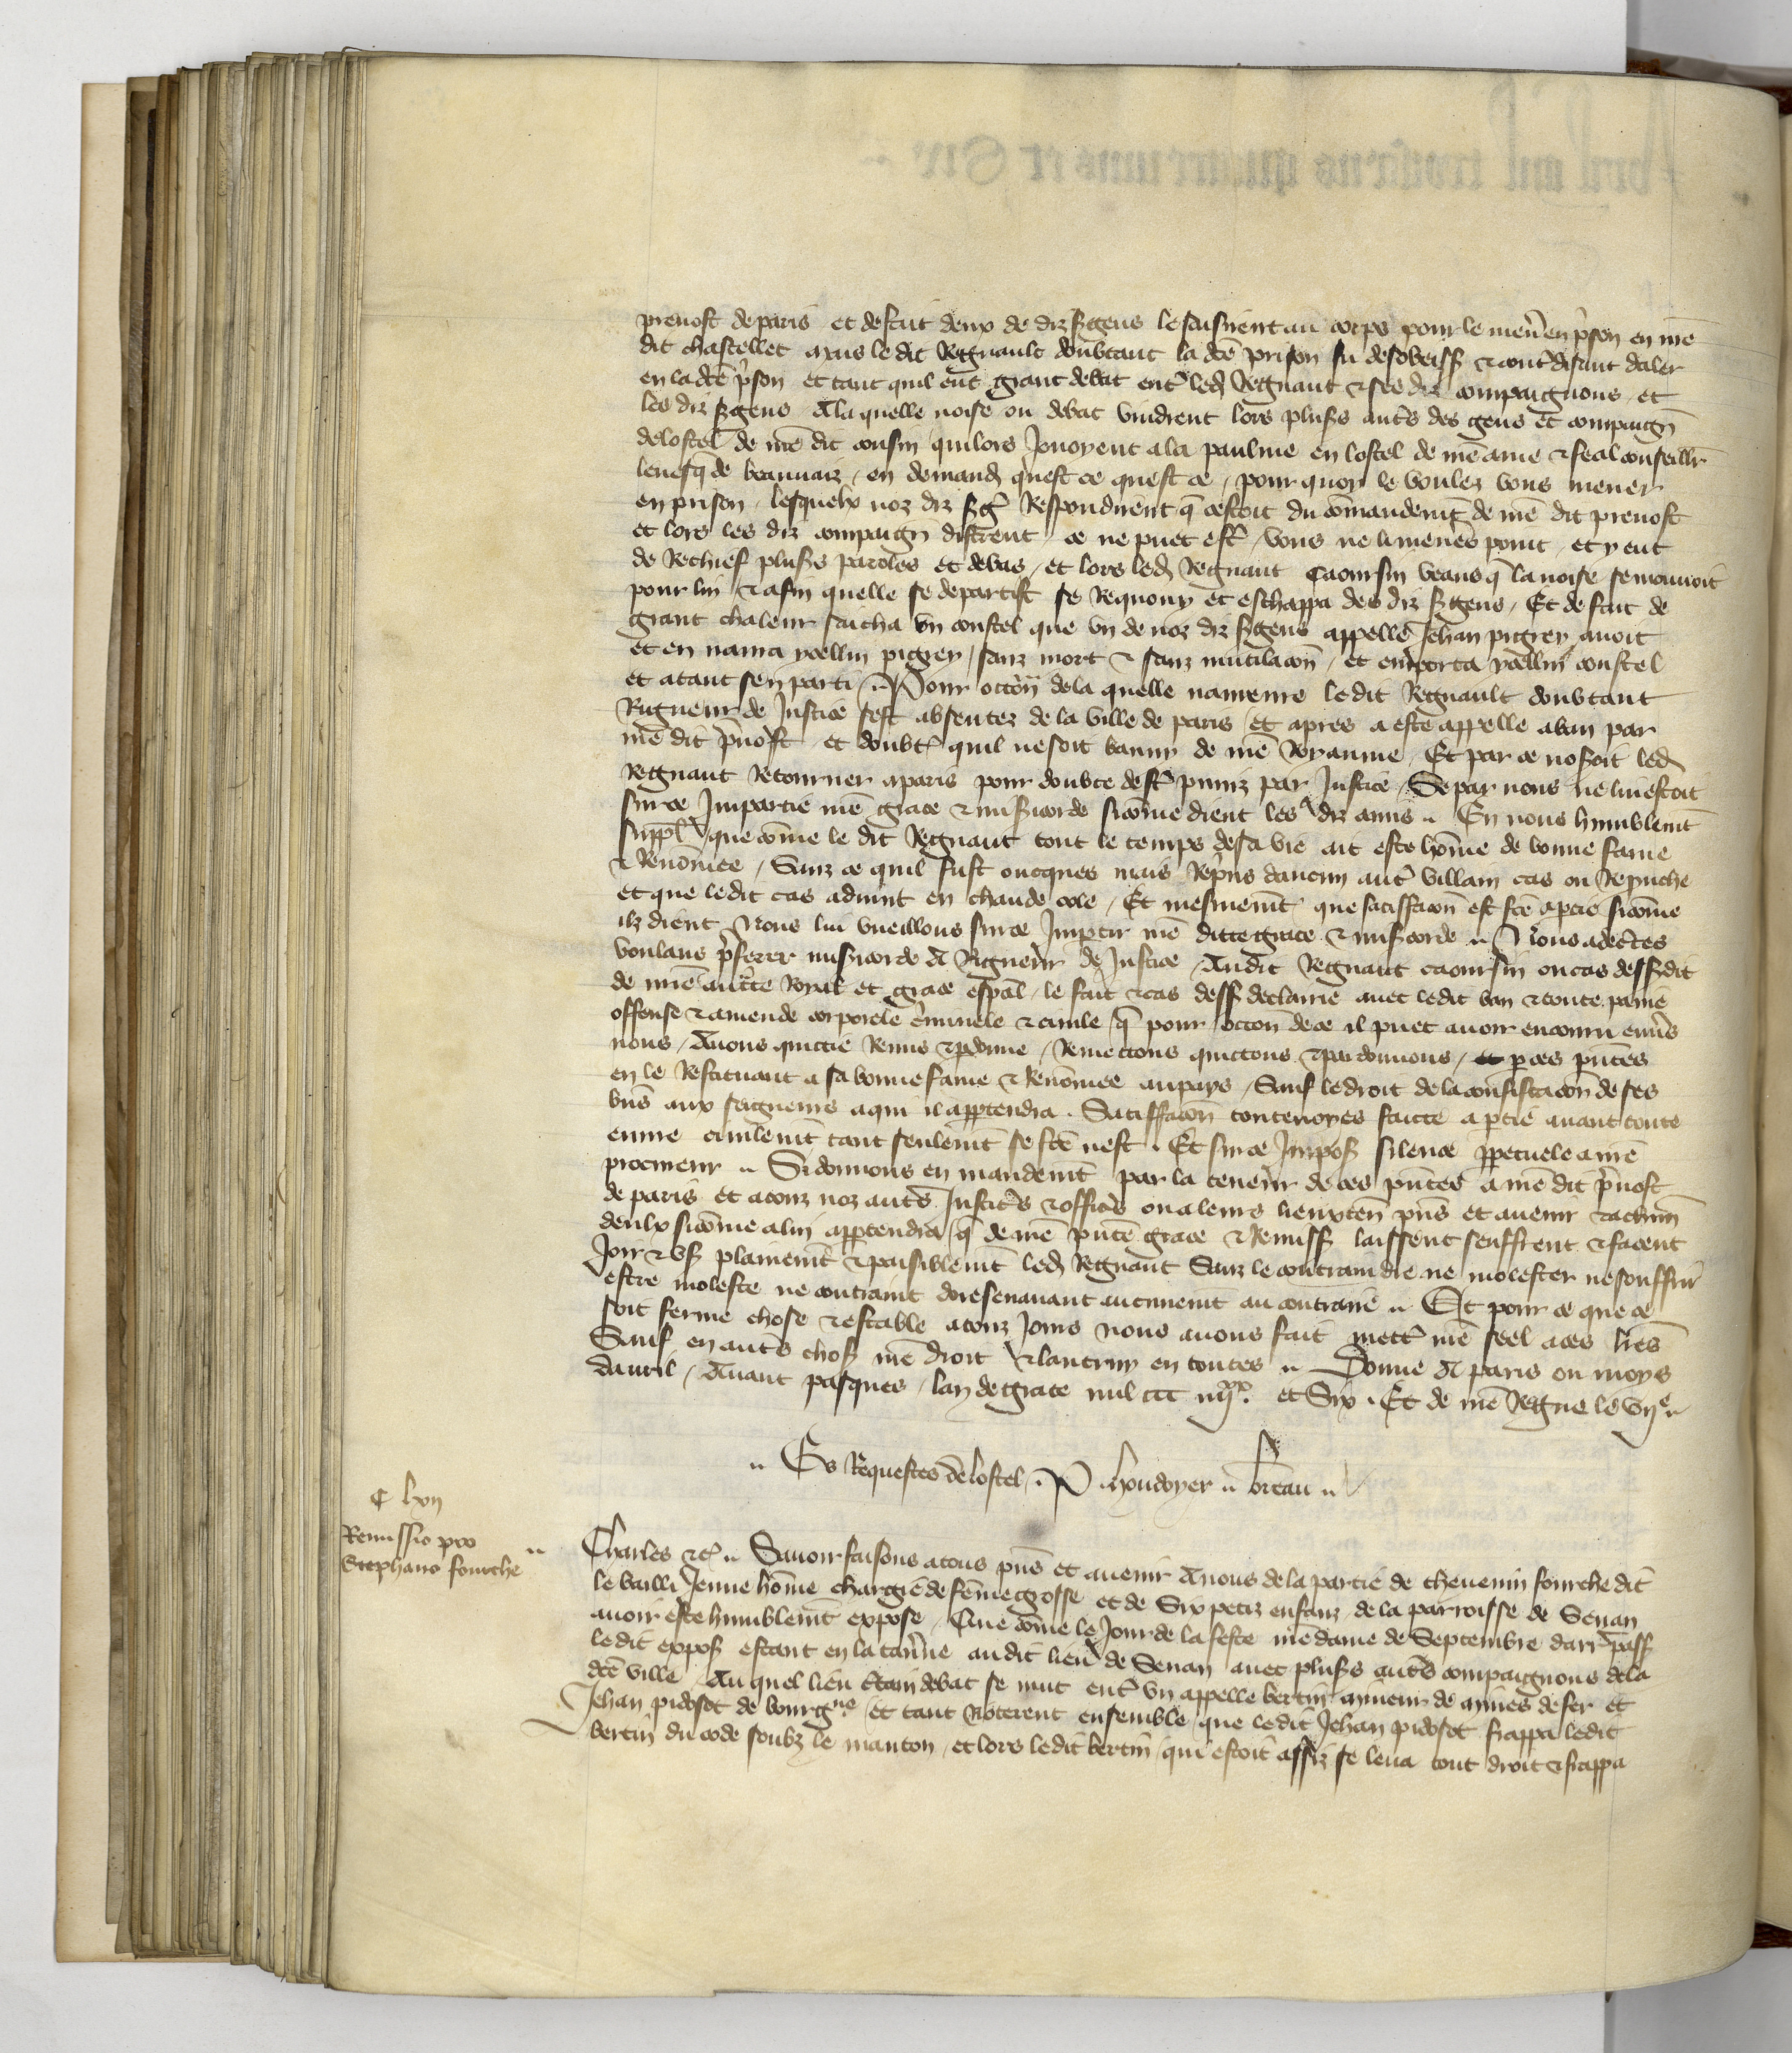 prevost de paris et de fait deux de diz sergens le saisirent au corps pour le mener en prison en nre
dit chastellet maiz le dit Regnault doubtant la dcte prison fu desobeiss et contredisant daler
en la dcte prison et tant quil eut grant debat entre ledit Regnaut et ses diz compaignons et
les diz sergens A la quelle noise ou debat vindrent lors plusrs autres des gens et compaign
de lostel de nre dit cousin quilors Jouoyent a la paulme en lostel de nre ame et feal conseillr
levesq de beauvaiz en demand quest ce quest ce pour quoy le voulez vous mener
en prison lesquelx noz diz serg Respondirent q cestoit du commandemt de nre dit prevost
et lors les diz compaign distrent ce ne puet estre vous ne li menres point et y eut
de Rechief plusrs paroles et debas et lors led Regnaut Caoursin veans q la noise se mouvoit
pour lui et afin quelle se departist se Requouy et eschappa des diz sergens Et de fait de
grant chaleur sacha un coustel que un de noz diz sergens appelle Jehan pigrey avoit
et en navra ycellui pigrey sanz mort et sanz mutilacon et emporta ycellui coustel
et atant sen parti Pour occon de la quelle navreure le dit Regnault doubtant
Rigueur de Justice sest absentez de la ville de paris et apres a este appelle a ban par
nre dit prevost et doubte quil ne soit banny de nre Royaume Et par ce nosoit led
Regnaut Retourner a paris pour doubte destre puniz par Justice Se par nous ne lui estoit
sur ce Impartie nre grace et misericorde sicomme dient les diz amis En nous humblemt
suppl que comme le dit Regnaut tout le temps de sa vie ait este homme de bonne fame
et Renommee Sanz ce quil fust oncques mais Repris daucun autre villain cas ou Reprche
et que ledit cas advint en chaude cole Et mesmemt que satisfacon est fcte a partie sicomme
ilz dient Nous lui vueillons sur ce Impartir nre dicte grace et misericorde Nous adectes
voulans preferer misericorde A Rigueur de Justice Audit Regnaut caoursin ou cas dessusdit
de nre auctte Royal et grace espal le fait et cas dess declairie avec ledit ban et toute paine
offense et amende corporele criminele et civile q pour occon de ce il puet avoir encouru envers
nous Avons quictie Remis et pardonne Remectons quictons et pardonnons et par ces pntes
en le Restituant a sa bonne fame et Renommee au pays Sauf le droit de la confiscacon de ses
biens aux seigneurs a qui il appartendra Satisfacon toutevoyes faicte a partie avant toute
euvre civilemt tant seulemt se fcte nest Et sur ce Impos silence perpetuele a nre
procureur Si donnons en mandemt par la teneur de ces pntes a nre dit prevost
de paris et a touz noz autres Justiciers et officiers ou a leurs lieuxten pns et avenir et a chun
deulx sicomme a lui appartendra q de nre pnte grace et Remiss laissent seuffrent et facent
Joir et user plainemt et paisiblemt led Regnaut Sanz le contraindre ne molester ne souffrir
estre moleste ne contraint doresenavant aucunemt au contraire Et pour ce que ce
soit ferme chose et estable a touz Jours nous avons fait mectre nre seel a ces lres
Sauf en autres chos nre droit et lautruy en toutes Donne A paris ou moys
davril Avant pasques lan de grace mil ccc iiijxx et Six Et de nre Regne le vije
Es Requestes de lostel P. houdoyer breau
C lxij
Remissio pro
Stephano fourche
Charles etc Savoir faisons a tous pns et avenir A nous de la partie de thevenin fourche dit
le bailli Jeune homme chargie de femme grosse et de Six petiz enfanz de la parroisse de Senan
avoir este humblemt expose Que comme le Jour de la feste nre dame de Septembre darr pass
ledit expos estant en la taverne au dit lieu de Senan avec plusrs autres compaignons de la
dcte ville Au quel lieu certain debat se mut entre un appelle bertin armeur de armes de fer et
Jehan pidoset de bourgne et tant Roterent ensemble que ledit Jehan pidoset frappa ledit
bertin du code soubz le manton et lors ledit bertin qui estoit assiz se leva tout droit et frappa